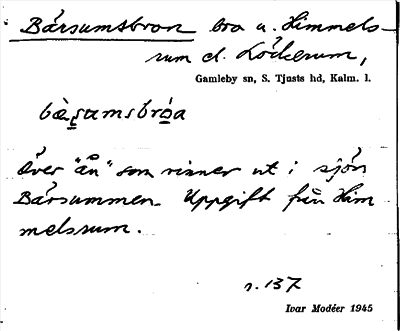 Bårsumsbron bro u. Himmels-
rum o. Löckerum,
Gamleby sn, S. Tjusts hd, Kalm. l.
över "ån" som rinner ut i sjön
Bårsummen. Uppgift från Him
melsrum.
s. 137
Ivar Modéer 1945